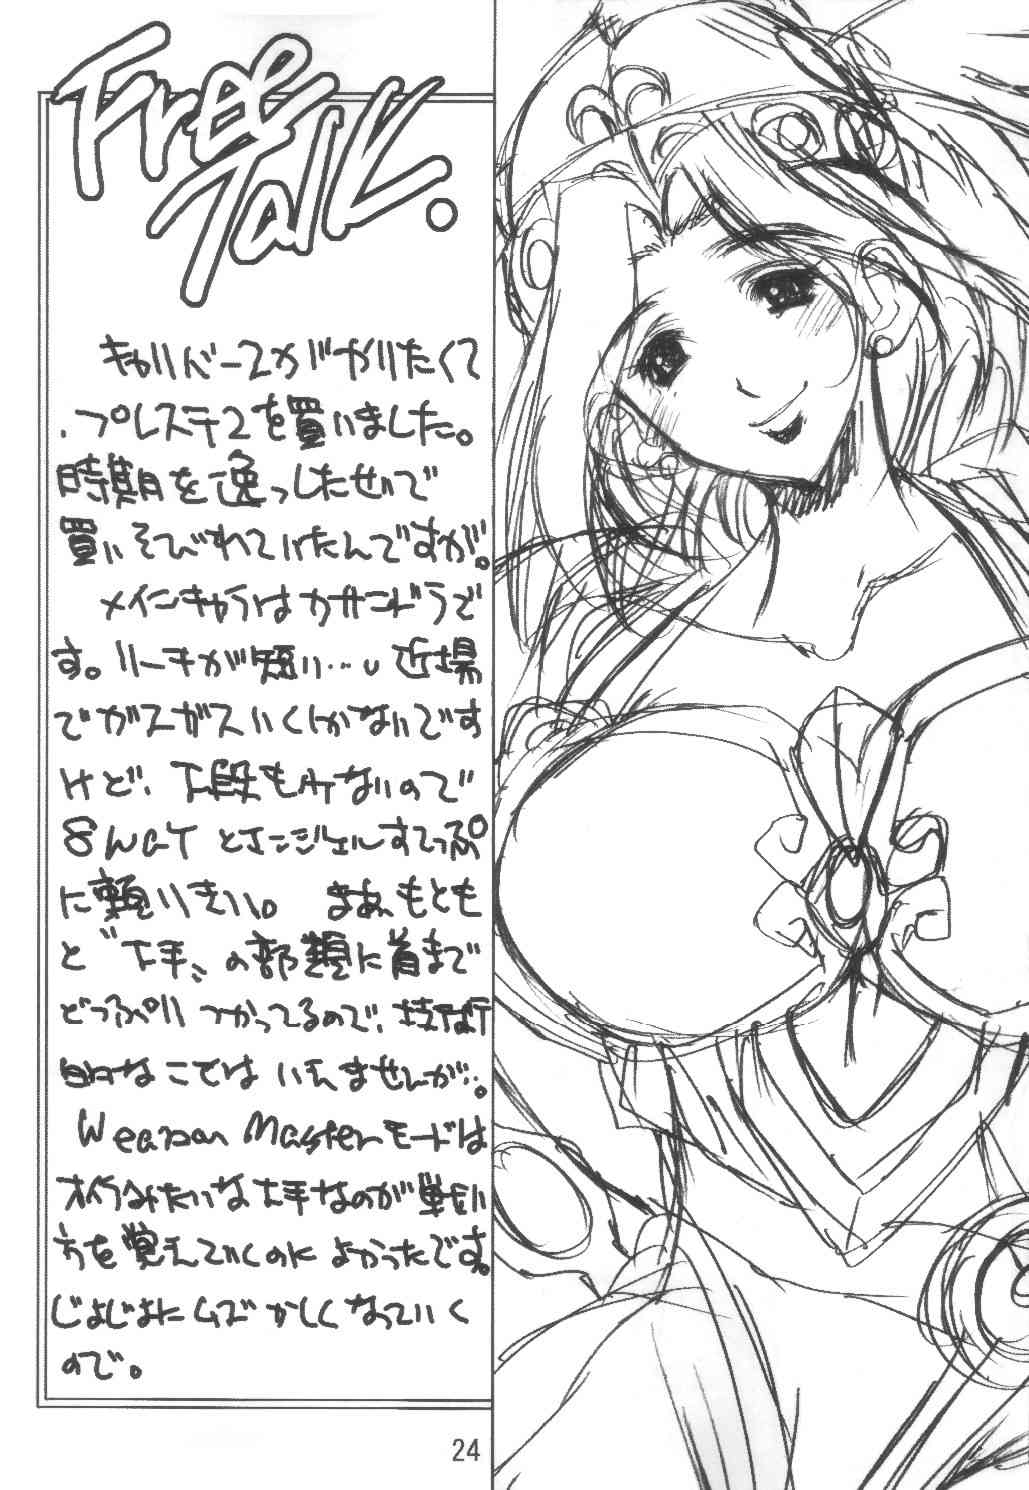 Free
Talk.
キャリバー2がやりたくて
、プレステ2を買いました。
時期を逸っしたせいで
買いそびれていたんですが。
メインキャラはカサンドラで
す。リーチが短い…し 近場
でガスガスいくしかないです
けど、下段もケないので
8WAY とエンジェルすてっぷ
に頼りきり。 まあ、もとも
と〝下手〟の部類に首まで
どっぷり つかってるので、
的なことでは いえませんが。
Weapon Masterモードは
オイラみたいな下手なのが戦い
方を覚えていくのに よかったです。
じょじょにムズかしくなっていく
ので。
24